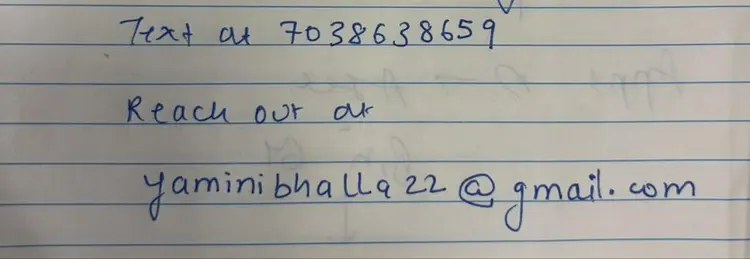 Text at 7038638659
Reach out at
yaminibhalla22@gmail.com